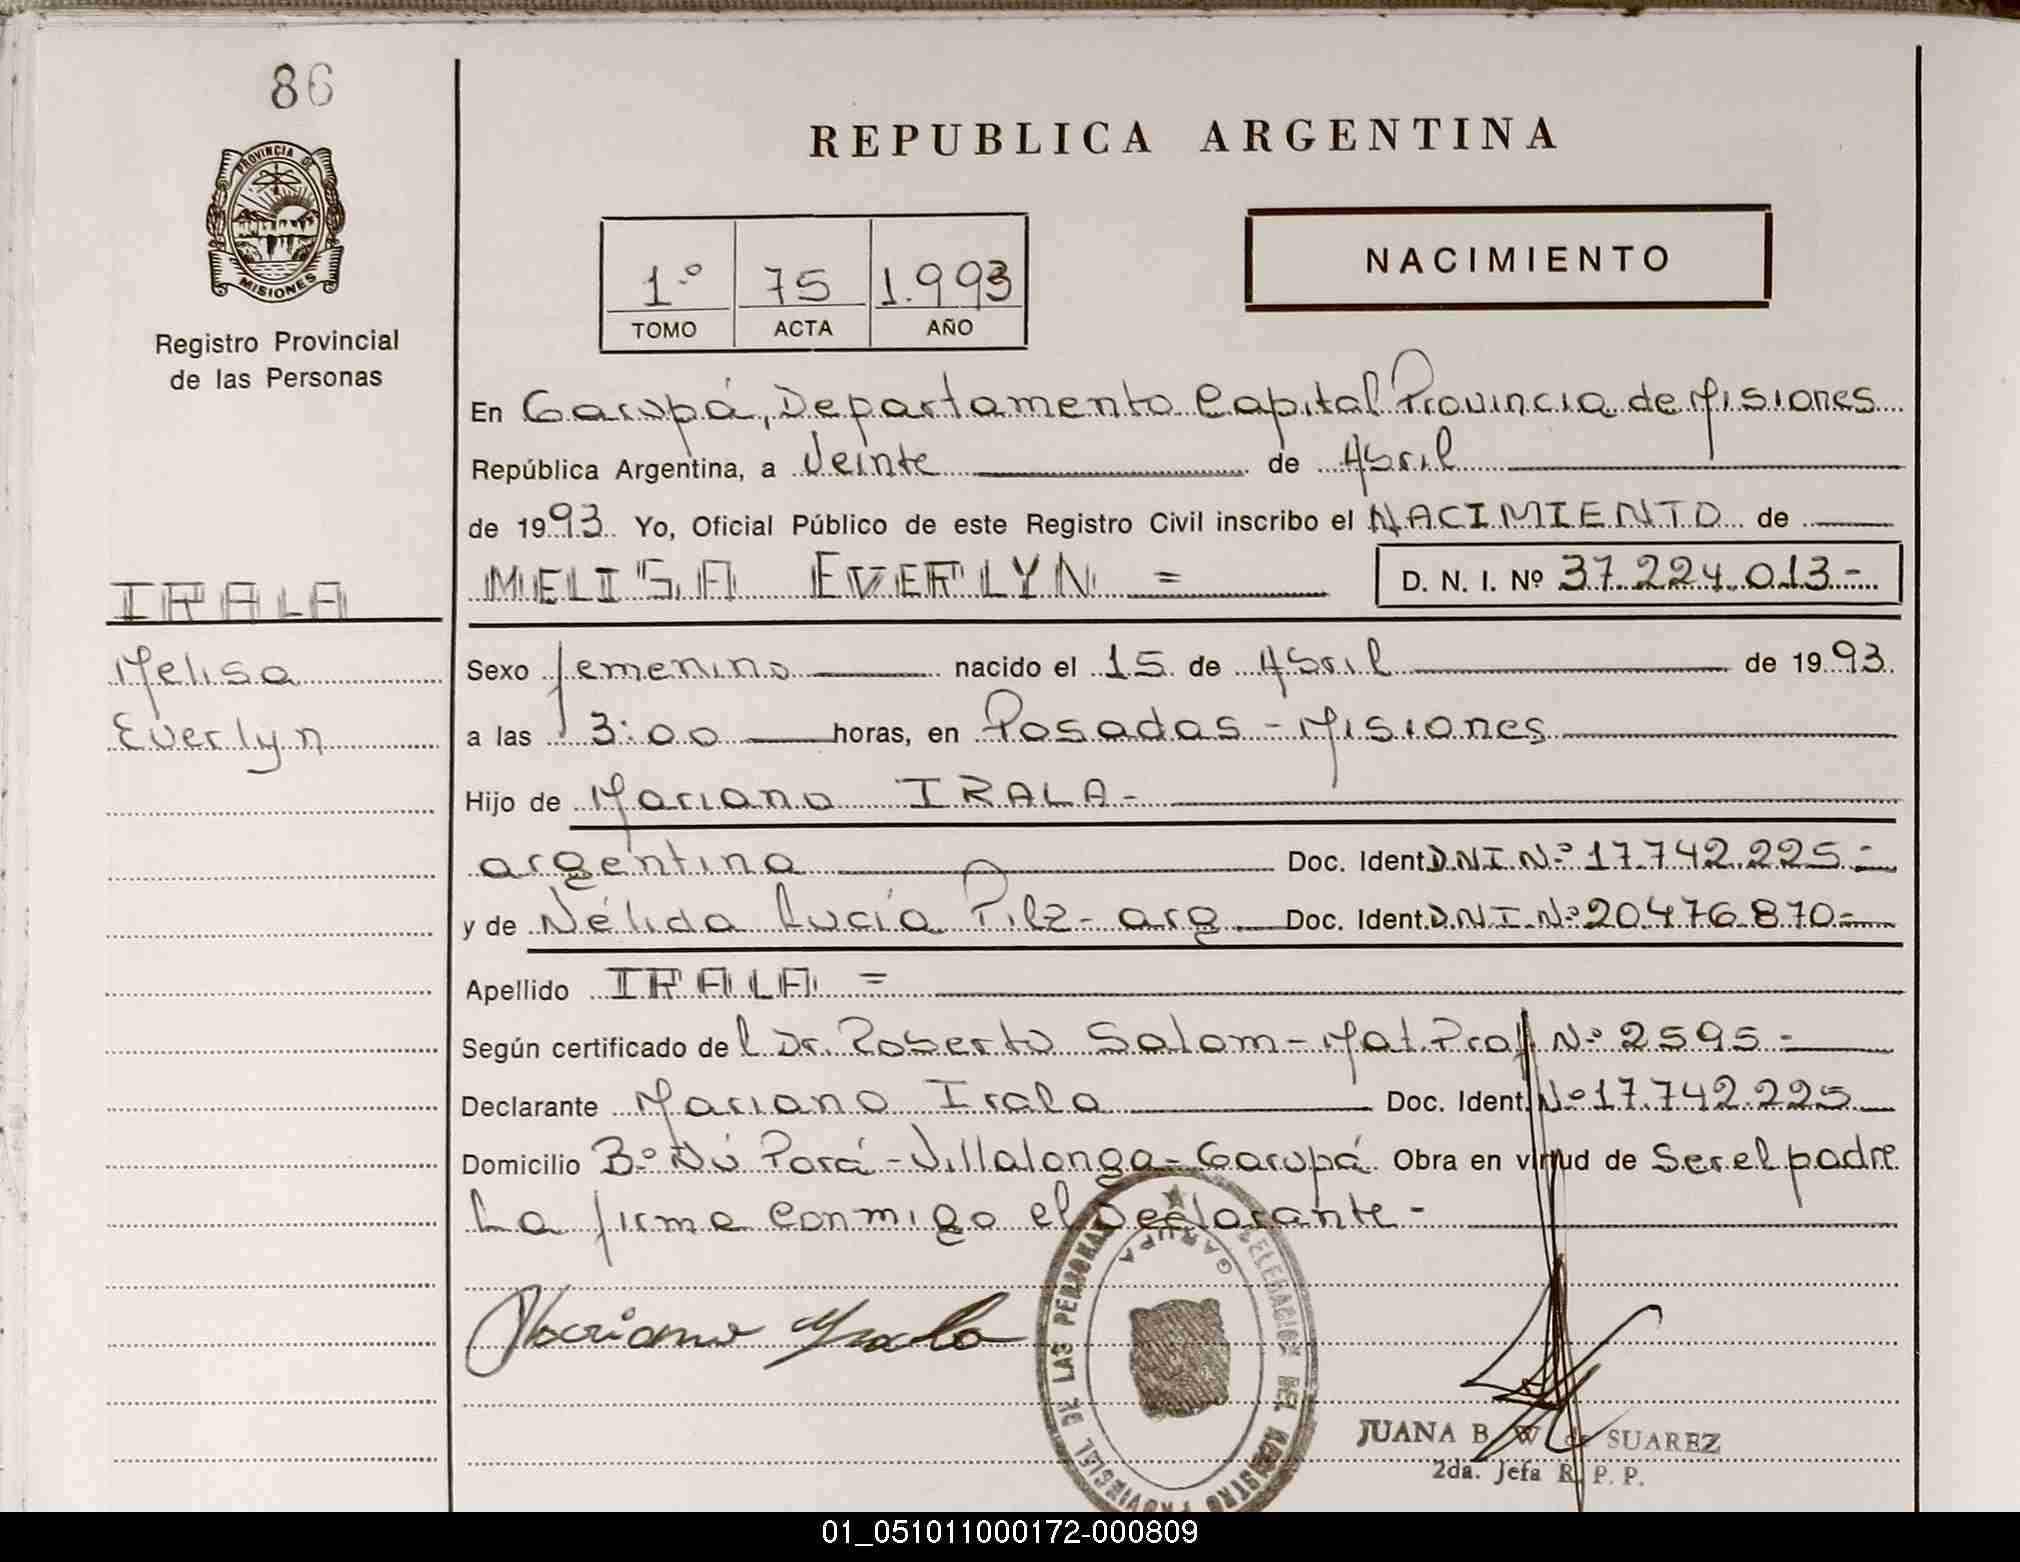 86
REPUBLICA ARGENTINA
PROVINCIA DE
MISIONES
Registro Provincial
de las Personas
1.º 75 1.993
TOMO ACTA AÑO
NACIMIENTO
En Garupá, Departamento Capital Provincia de Misiones
República Argentina, a Veinte de Abril
de 1993. Yo, Oficial Público de este Registro Civil inscribo el NACIMIENTO de
MELISA EVERLYN = D. N. I. Nº 37.224.013-
IRALA
Melisa
Everlyn
Sexo femenino nacido el 15 de Abril de 1993
a las 3:00 horas, en Posadas - Misiones
Hijo de Mariano IRALA-
argentina Doc. Ident. D.N.I.N.º 17.742.225-
y de Nélida Lucía Pilz - arg Doc. Ident. D.N.I.N.º 20.476.870=
Apellido IRALA =
Según certificado del Dr. Roberto Salom - Mat. Prof N.º 2595-
Declarante Mariano Irala Doc. Ident. Nº 17.742.225
Domicilio B.º Ñú Porá - Villalonga - Garupá. Obra en virtud de Ser el padre
La firma conmigo el Declarante-
Mariano Irala
DELEGACION DEL REGISTRO PROVINCIAL DE LAS PERSONAS
GARUPA
JUANA B. W de SUAREZ
2da. Jefa R. P. P.
01_051011000172-000809